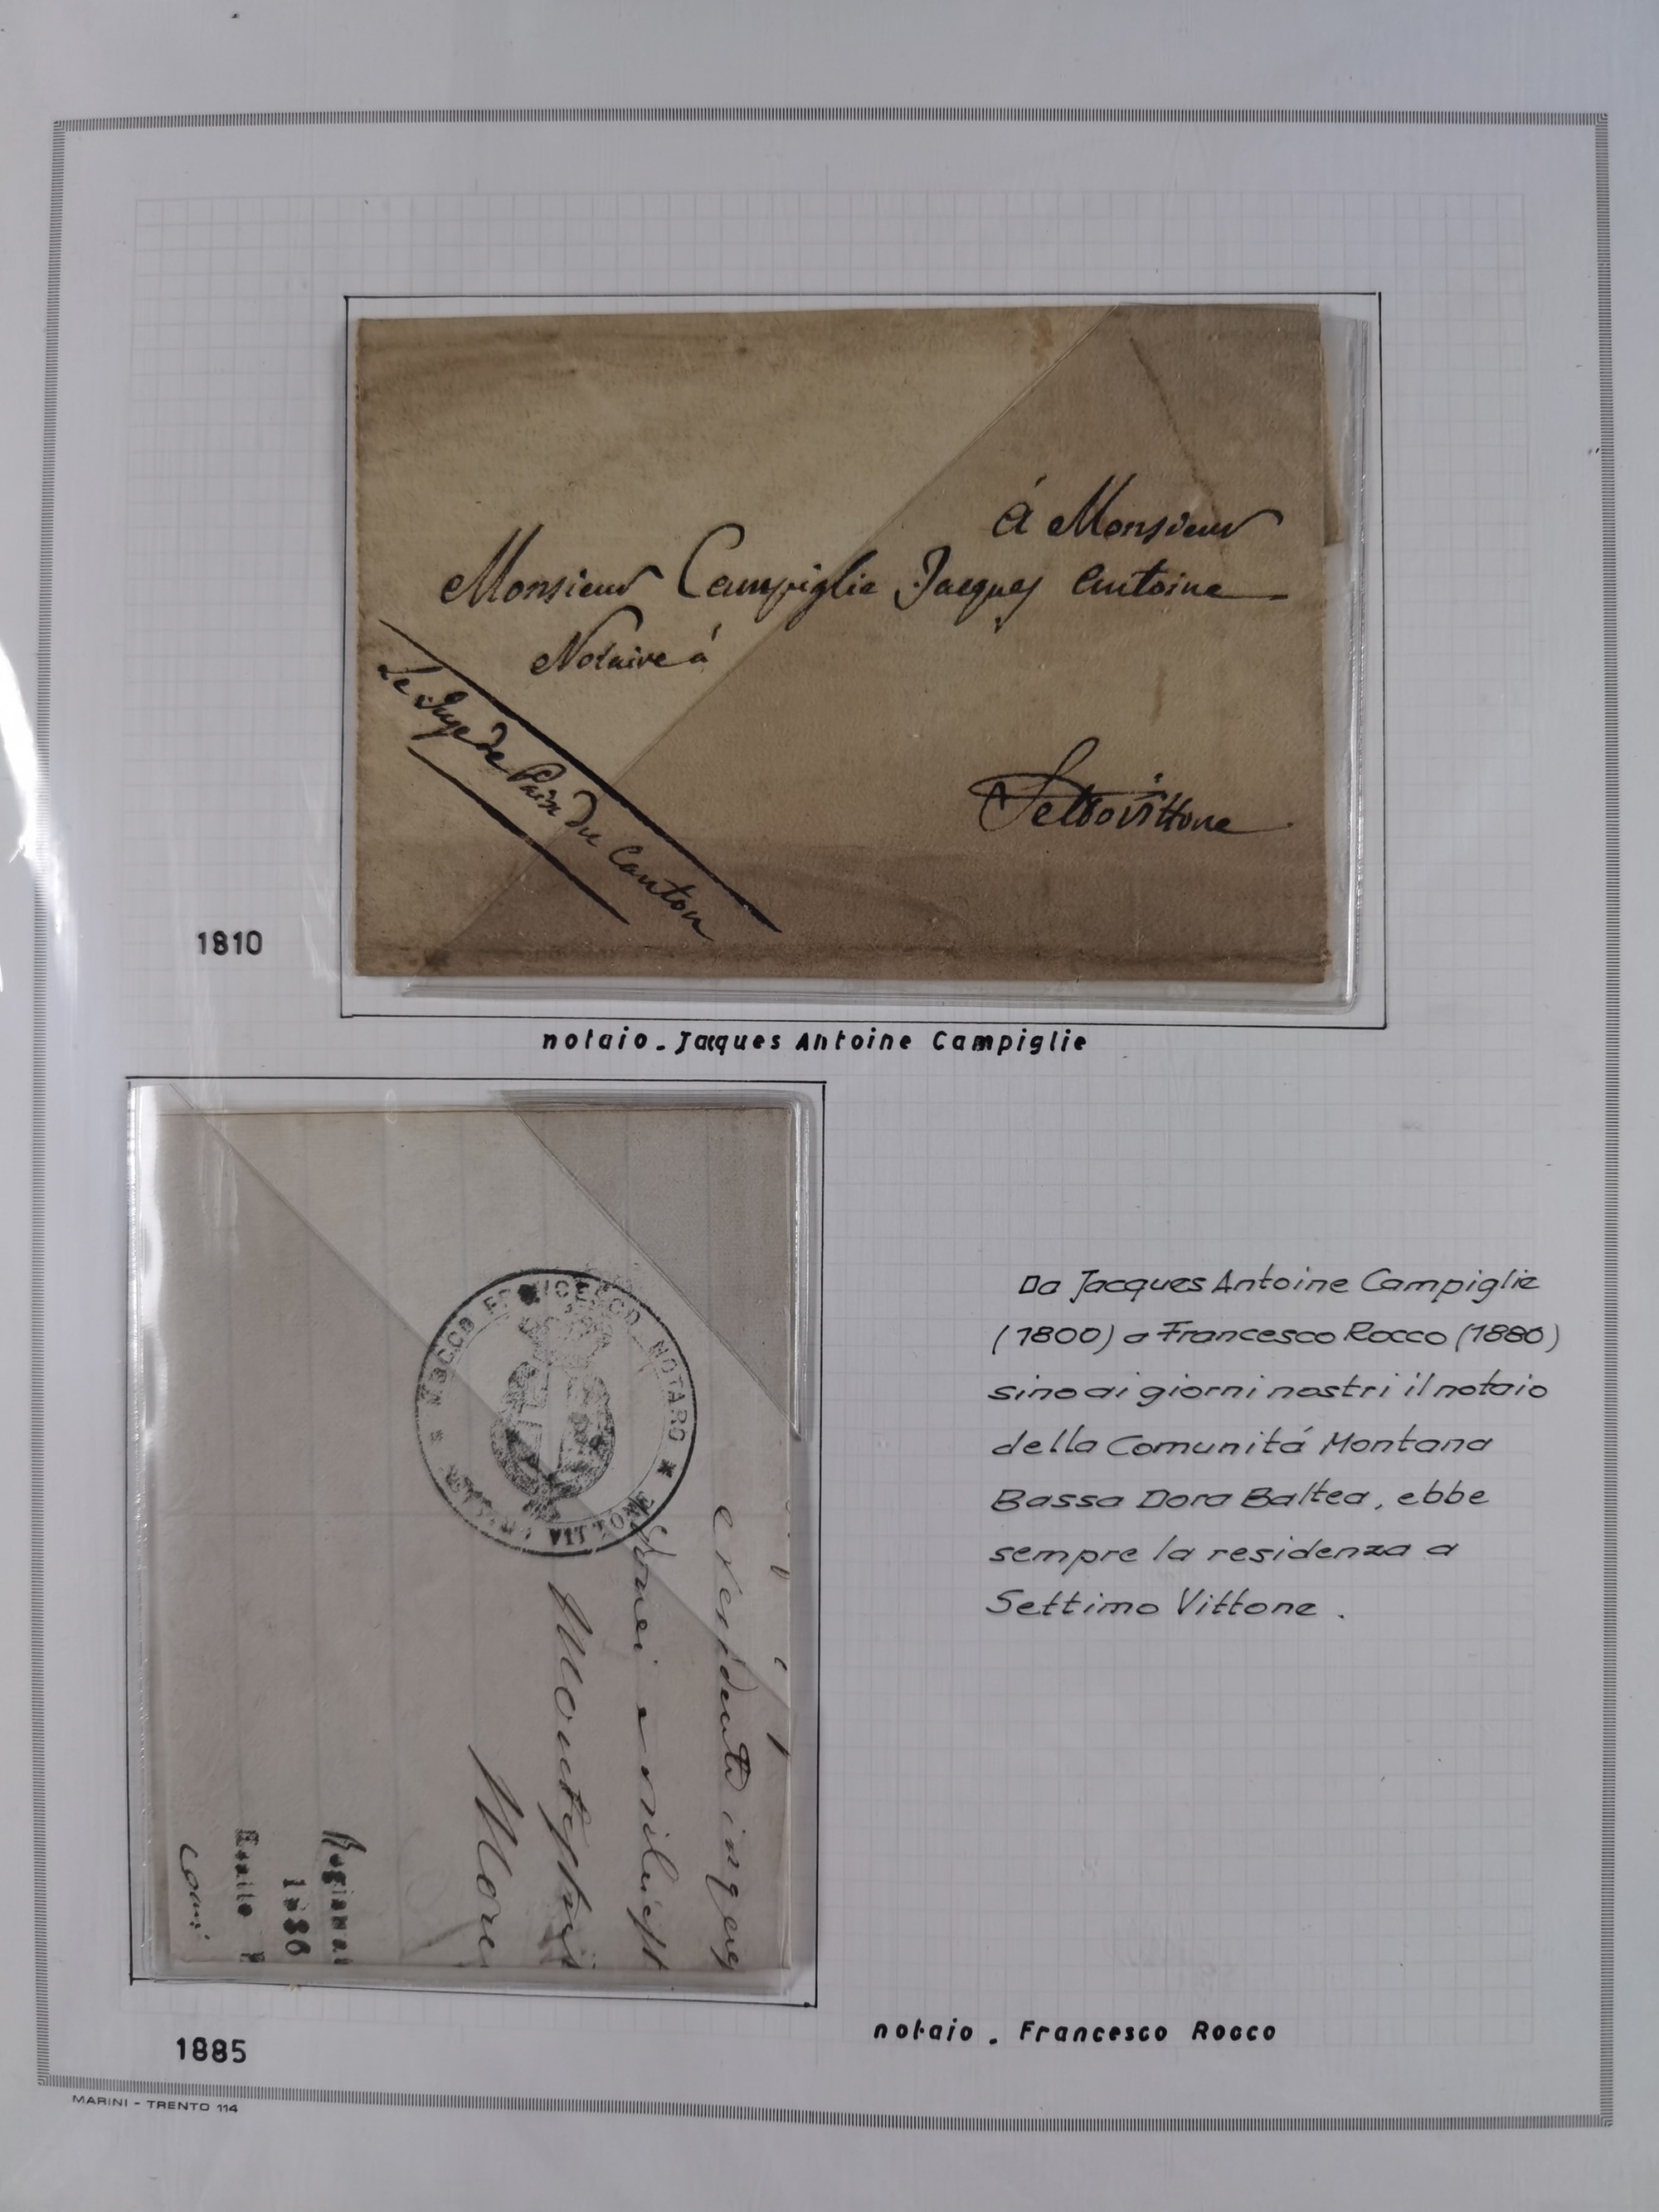 á Monsieur
Monsieur Campiglie Jacques Antoine
Notaire á
Le Juge de Paix du Canton
Settovittone
1810
notaio - Jacques Antoine Campiglie
ROCCO FRANCESCO NOTARO
e residenti in
Montestrutto
1886
Da Jacques Antoine Campiglie
(1800) a Francesco Rocco (1880)
sino ai giorni nostri il notaio
della Comunitá Montana
Bassa Dora Baltea, ebbe
sempre la residenza a
Settimo Vittone.
1885
notaio - Francesco Rocco
MARINI - TRENTO 114